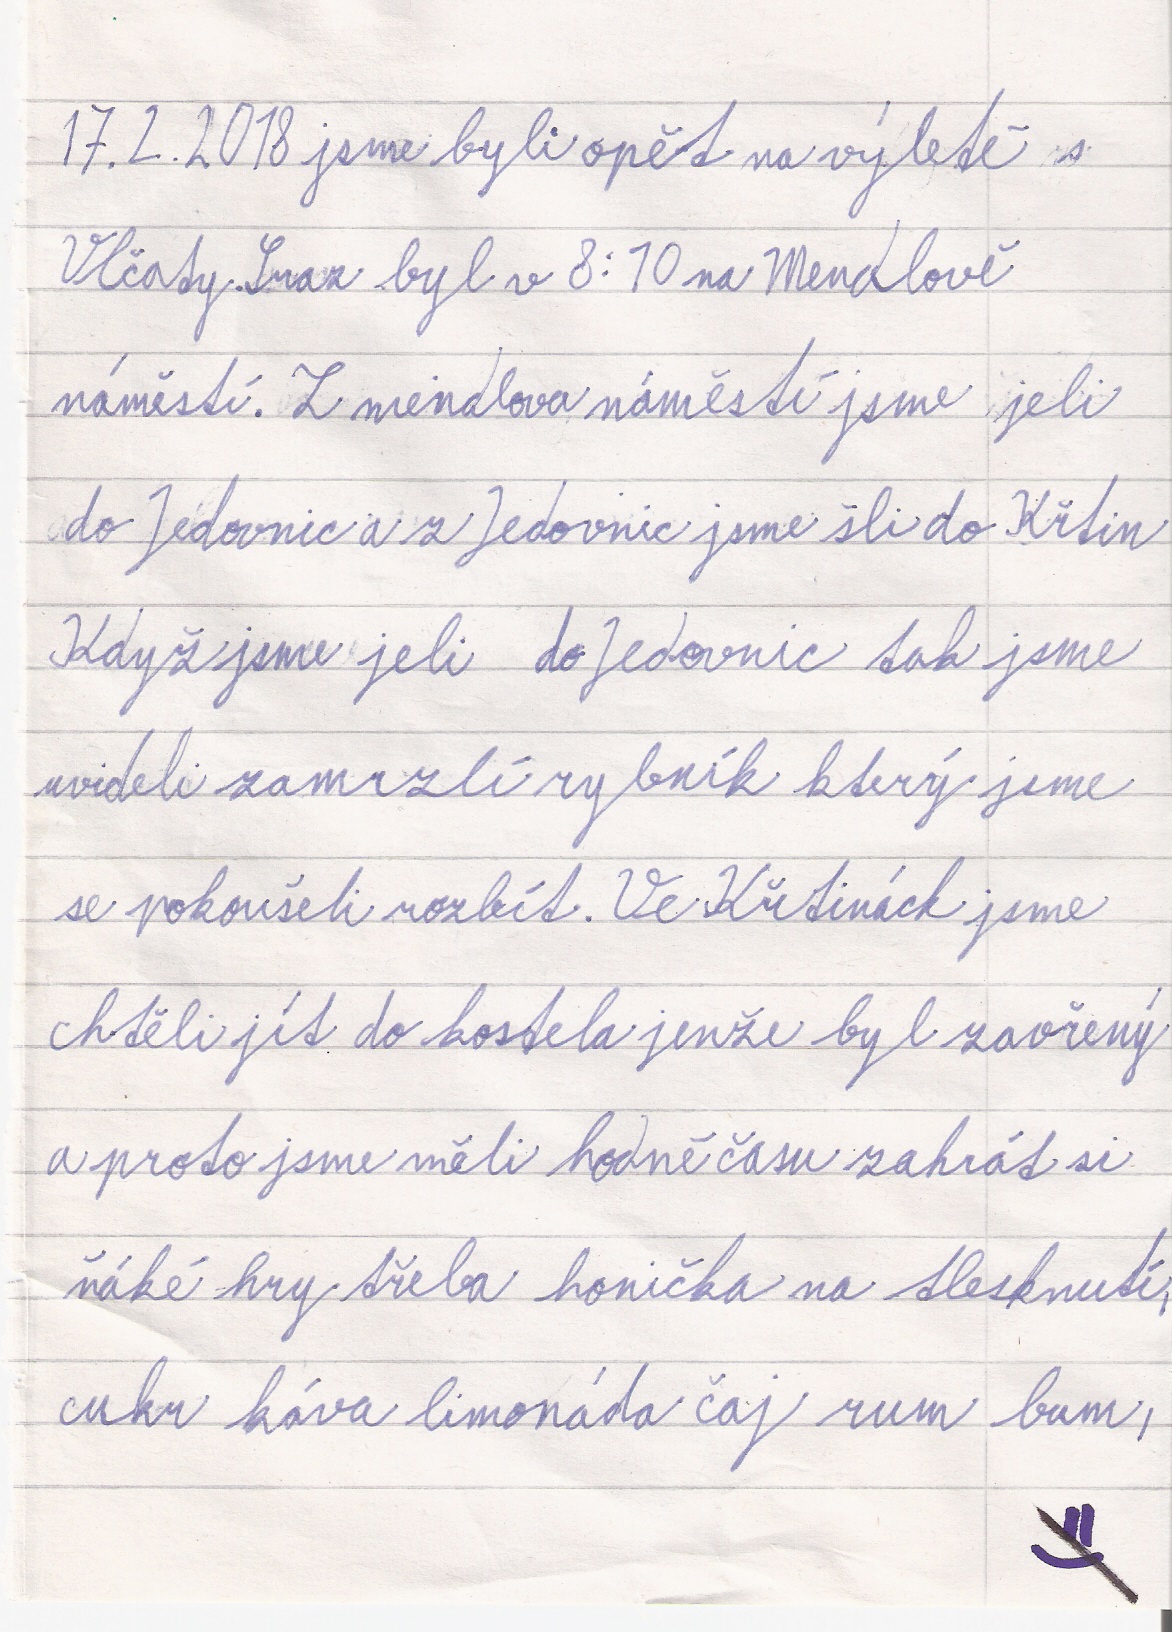 17.2.2018 jsme byli opět na výletě s
Vlčaty. Sraz byl v 8:10 na Mendlově
náměstí. Z mendlova náměstí jsme jeli
do Jedovnic a z Jedovnic jsme šli do Křtin
Když jsme jeli do Jedovnic tak jsme
uvideli zamrzlí rybník který jsme
se pokoušeli rozbít. Ve Křtinách jsme
chtěli jít do kostela jenže byl zavřený
a proto jsme měli hodně času zahrát si
ňáké hry třeba honička na tlesknutí,
cukr káva limonáda čaj rum bum,